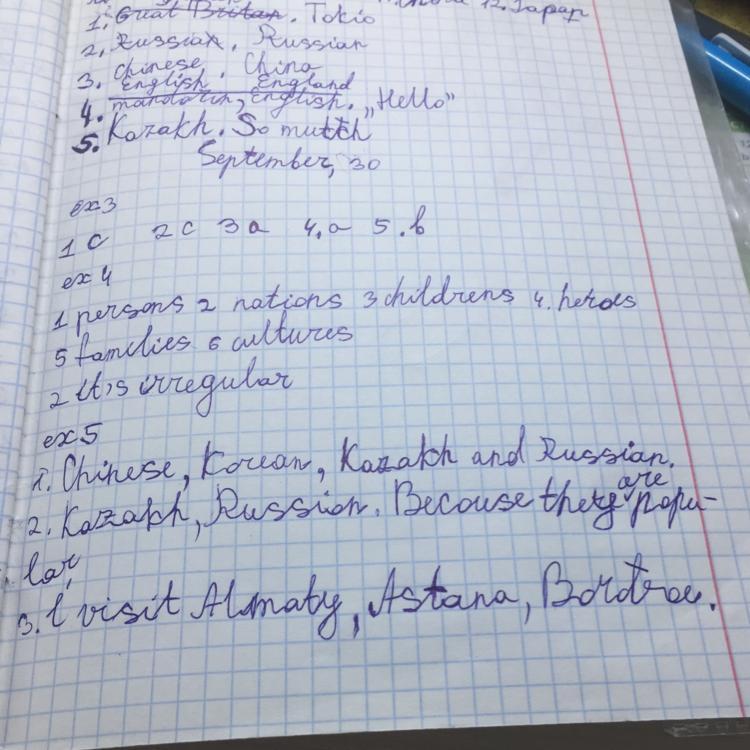 12. Japan
1. Great Britan. Tokio
2. Russian. Russian
3. Chinese. China
English. England
4. mandarin, English. „Hello"
5. Kazakh. So mutch
September, 30
ex3
1 c 2 c 3 a 4. a 5. b
ex 4
1 persons 2 nations 3 childrens 4. heroes
5 families 6 cultures
2 It,s irregular
ex5
1. Chinese, Korean, Kazakh and Russian.
2. Kazakh, Russion. Becouse they are popu-
lar,
3. I visit Almaty, Astana,